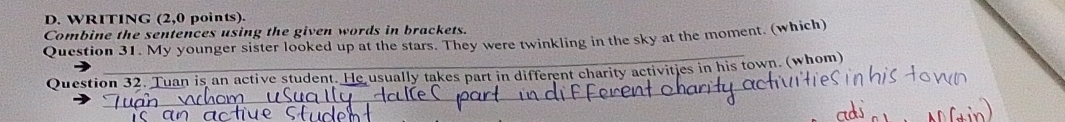 D. WRITING (2,0 points).
Combine the sentences using the given words in brackets.
Question 31. My younger sister looked up at the stars. They were twinkling in the sky at the moment. (which)
➔
Question 32. Tuan is an active student. He usually takes part in different charity activities in his town. (whom)
➔ Tuan whom usually takes part in different charity activities in his town
is an active student
adj